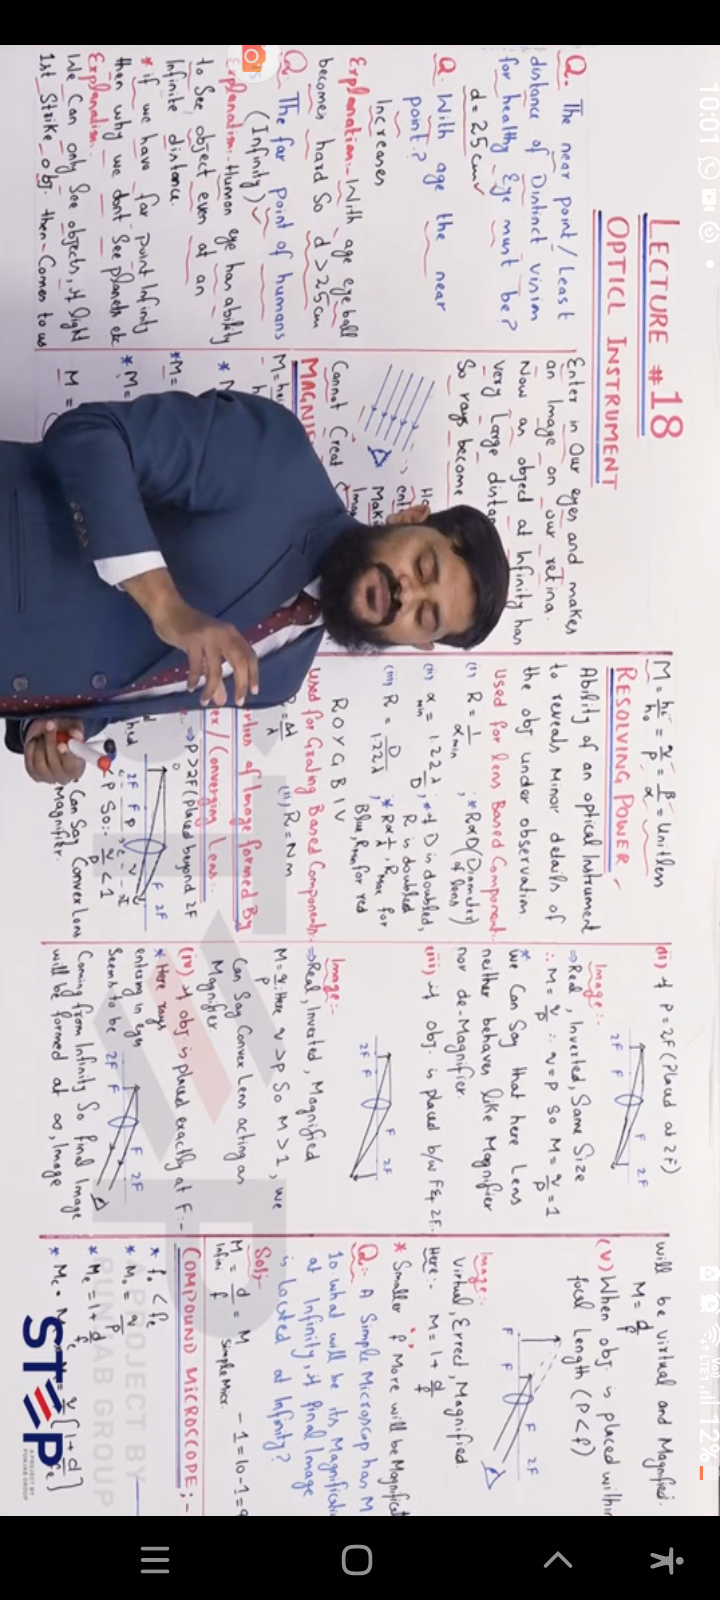 10:01
LTE1
12%
LECTURE #18
OPTICL INSTRUMENT
Q. The near point/Least
distance of Distinct vision
for healthy Eye must be?
d = 25cm
Q. With age the near
point?
Increases
Explanation:- With age eyeball
becomes hard So d > 25cm
Q. The far point of humans
is (Infinity)
Explanation:- Human eye has ability
to See object even at an
Infinite distance.
* if we have far point Infinity
then why we dont See planets etc
Explanation:-
We Can only See objects, if light
1st Strike obj. then Comes to us
Enter in Our eyes and makes
an Image on our retina.
Now an object at Infinity has
very Large
So rays become
Cannot Creat
M =
* M =
* M =
M =
M = hi/ho = q/p = β/α = Unitless
RESOLVING POWER
Ability of an optical Instrument
to reveals Minor details of
the obj under observation.
Used for Lens Based Component:-
(i) R = 1/αmin ; * R∝D (Diameter of lens)
(ii) αmin = 1.22 λ/D ; * if D is doubled, R is doubled
(iii) R = D/1.22λ ; * R∝1/λ, Rmax for Blue, Rmin for red
R O Y G B I V
Used for Grating Based Components:-
(ii) R = N m
of Image formed By
/Converging Lens:-
⇒ P > 2F (Placed beyond 2F
2F F F 2F
P So:- q/p < 1
Can Say Convex Lens
Magnifier.
(ii) if P = 2F (Placed at 2F)
2F F F 2F
Image:-
⇒ Real, Inverted, Same Size
∴ M = q/p ∴ q = p So M = q/p = 1
* we Can Say that here Lens
neither behaves like Magnifier
nor de-Magnifier.
(iii) if obj. is placed b/w F & 2F.
2F F F 2F
Image:-
⇒ Real, Inverted, Magnified
M = q/p : Here q > p So M > 1, we
Can Say Convex Lens acting as
Magnifier
(iv) if obj is placed exactly at F:-
* Here rays
entering in eye
Seems to be
2F F F 2F
Coming from Infinity So final Image
will be formed at ∞, Image
will be virtual and Magnified.
M = d/f
(v) When obj. is placed within
focal Length (P < f)
F F F 2F
Image:-
Virtual, Erect, Magnified
Here:- M = 1 + d/f
* Smaller f More will be
Q:- A Simple Microscop has M
10 what will be its
at Infinity, if final Image
is located at Infinity?
Sol:-
M infini = d/f = M simple Micr. - 1 = 10 - 1 = 9
COMPOUND MICROSCOPE;-
* fo < fe
* Mo = q/p
* Me = 1 + d/fe
[1 + d/fe]
PROJECT BY
PUNJAB GROUP
STEP
A PROJECT BY
PUNJAB GROUP